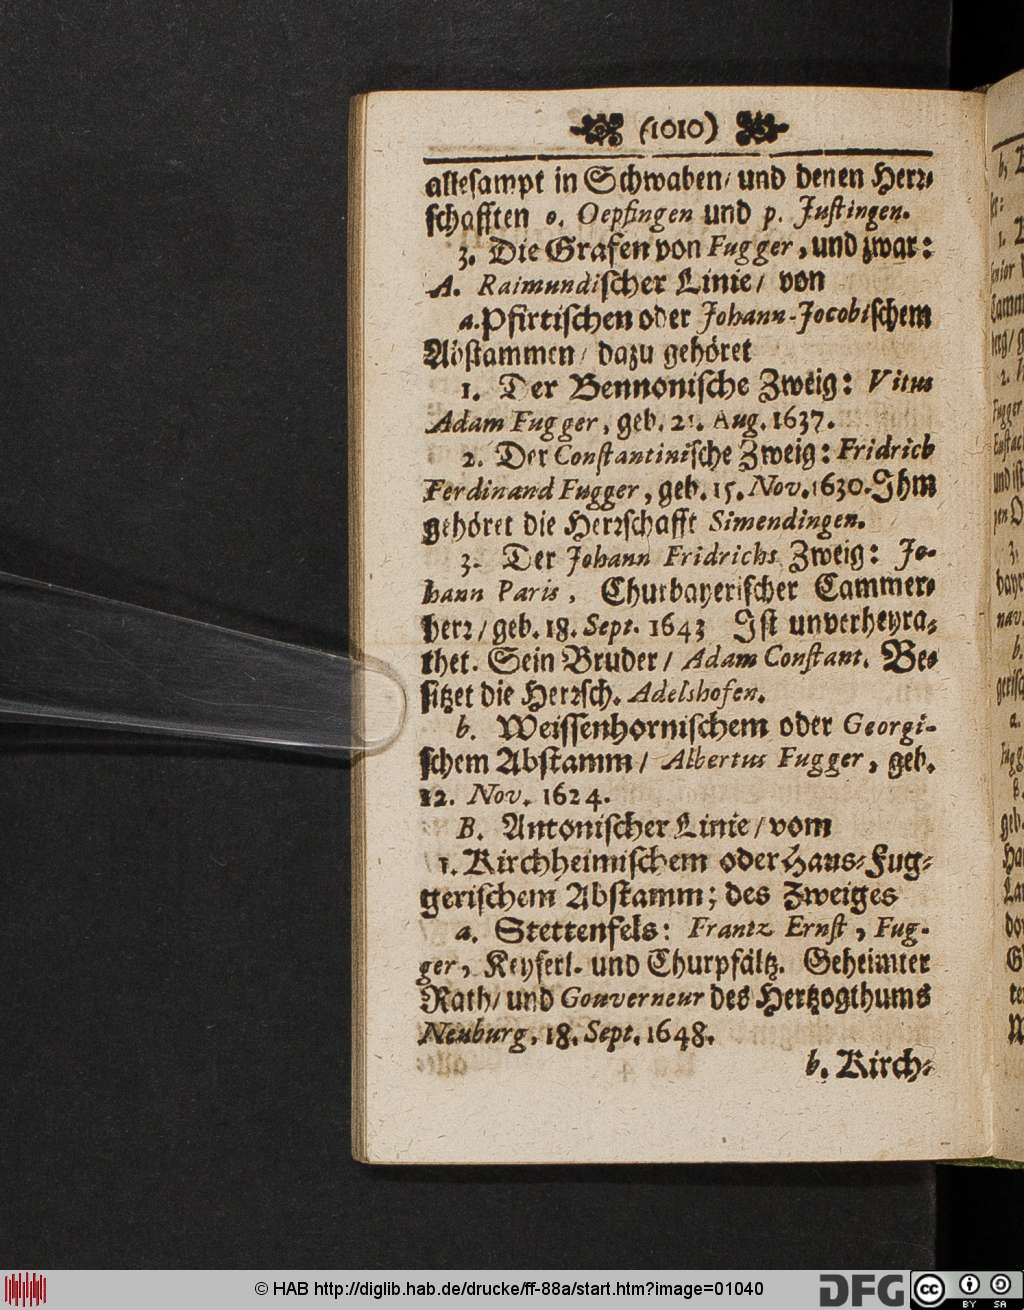 (1010)
allesampt in Schwaben/ und denen Herr-
schafften o. Oepfingen und p. Justingen.
3. Die Grafen von Fugger, und zwar:
A. Raimundischer Linie/ von
a. Pfirtischen oder Johann-Jocobischem
Abstammen/ dazu gehöret
1. Der Bennonische Zweig: Vitus
Adam Fugger, geb. 21. Aug. 1637.
2. Der Constantinische Zweig: Fridrich
Ferdinand Fugger, geb. 15. Nov. 1630. Ihm
gehöret die Herrschafft Simendingen.
3. Der Johann Fridrichs Zweig: Jo-
hann Paris, Churbayerischer Cammer-
herr/ geb. 18. Sept. 1643 Ist unverheyra-
thet. Sein Bruder/ Adam Constant. Be-
sitzet die Herrsch. Adelshofen.
b. Weissenhornischem oder Georgi-
schem Abstamm/ Albertus Fugger, geb.
12. Nov. 1624.
B. Antonischer Linie/ vom
1. Kirchheimischem oder Haus-Fug-
gerischem Abstamm; des Zweiges
a. Stettenfels: Frantz Ernst, Fug-
ger, Keyserl. und Churpfältz. Geheimter
Rath/ und Gouverneur des Hertzogthums
Neuburg, 18. Sept. 1648.
b. Kirch-
© HAB http://diglib.hab.de/drucke/ff-88a/start.htm?image=01040
DFG
cc
BY SA